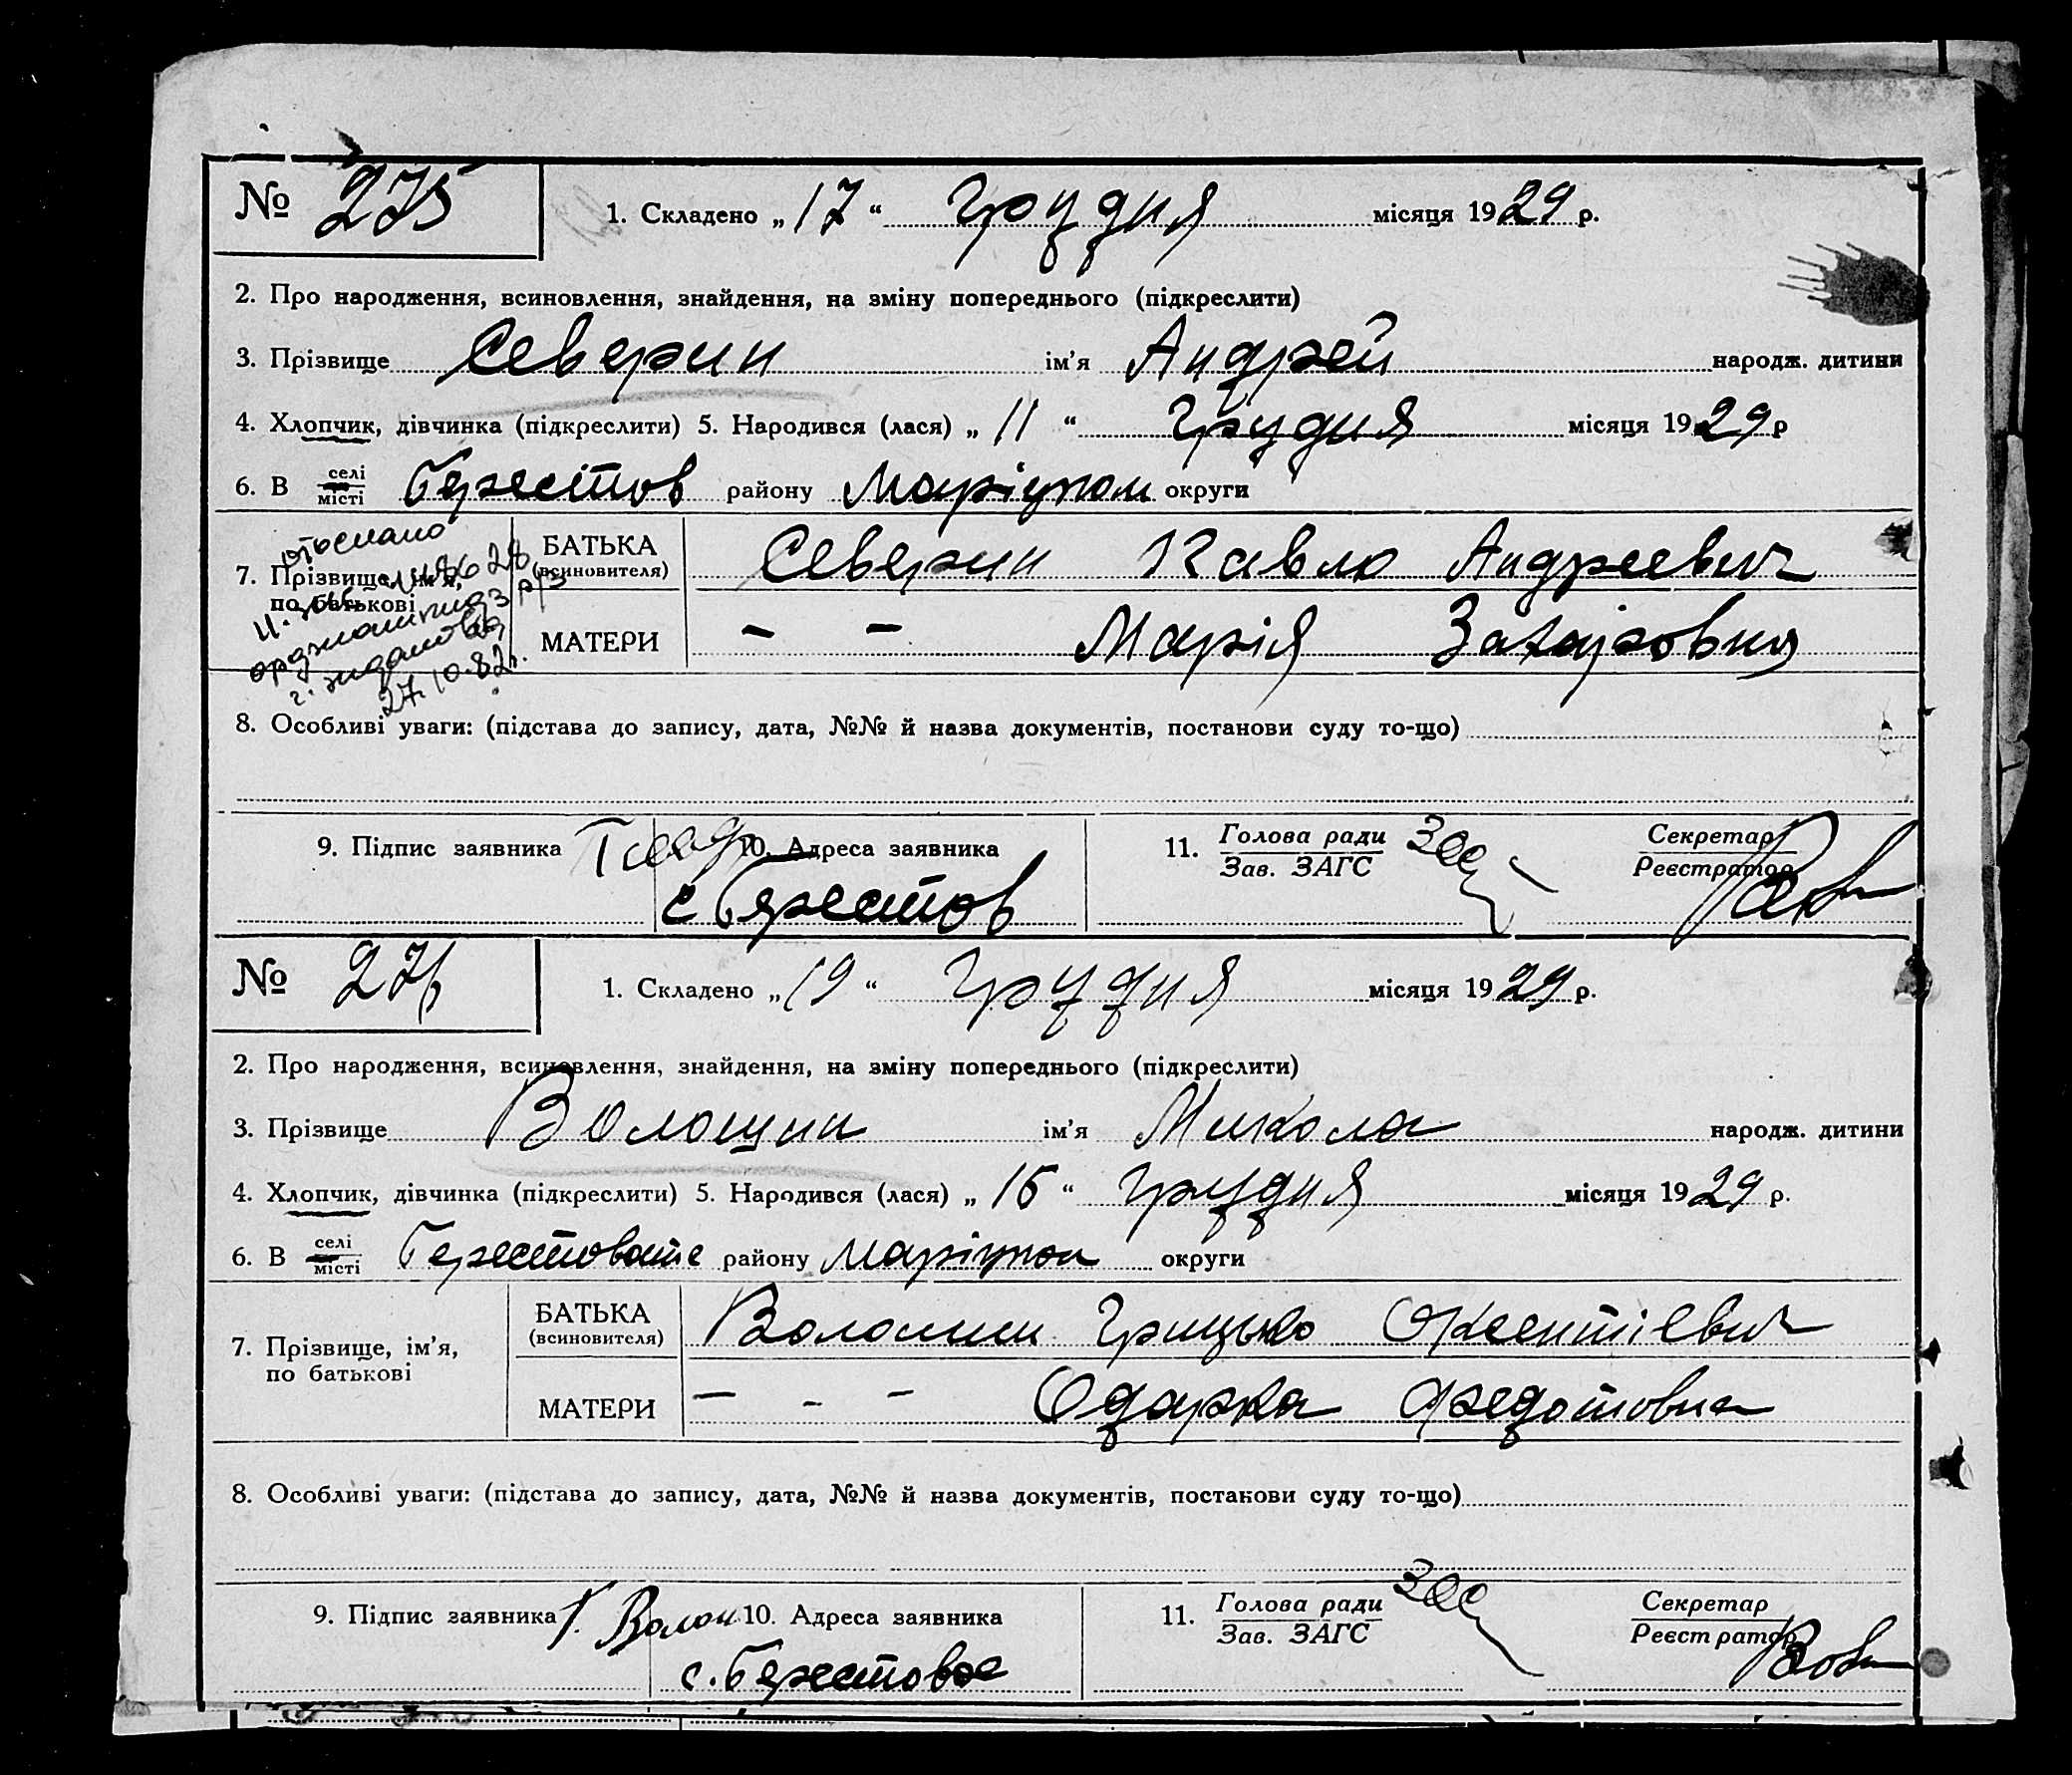 № 275
1. Складено „17“ грудня місяця 1929 р.
2. Про народження, всиновлення, знайдення, на зміну попереднього (підкреслити)
3. Прізвище Северин ім’я Андрей народж. дитини
4. Хлопчик, дівчинка (підкреслити) 5. Народився (лася) „11“ грудня місяця 1929 р
6. В селі місті Берестов району Маріупол округи
отослано
28
г. Жданова
27.10.82г.
7. Прізвище, ім’я, по батькові
БАТЬКА (всиновителя) Северин Павло Андреевич
МАТЕРИ – – Марія Захаровна
8. Особливі уваги: (підстава до запису, дата, №№ й назва документів, постанови суду то-що)
9. Підпис заявника 10. Адреса заявника
с Берестов
11. Голова ради Зав. ЗАГС
Секретар Реєстратор
№ 276
1. Складено „19“ грудня місяця 1929 р.
2. Про народження, всиновлення, знайдення, на зміну попереднього (підкреслити)
3. Прізвище Волошин ім’я Микола народж. дитини
4. Хлопчик, дівчинка (підкреслити) 5. Народився (лася) „16“ грудня місяця 1929 р.
6. В селі місті Берестовате району Маріупол округи
7. Прізвище, ім’я, по батькові
БАТЬКА (всиновителя) Волошин Грицько Оксентіевич
МАТЕРИ – - – Одарка Федотовна
8. Особливі уваги: (підстава до запису, дата, №№ й назва документів, постанови суду то-що)
9. Підпис заявника Г. Волош 10. Адреса заявника
с. Берестовое
11. Голова ради Зав. ЗАГС
Секретар Реєстратор